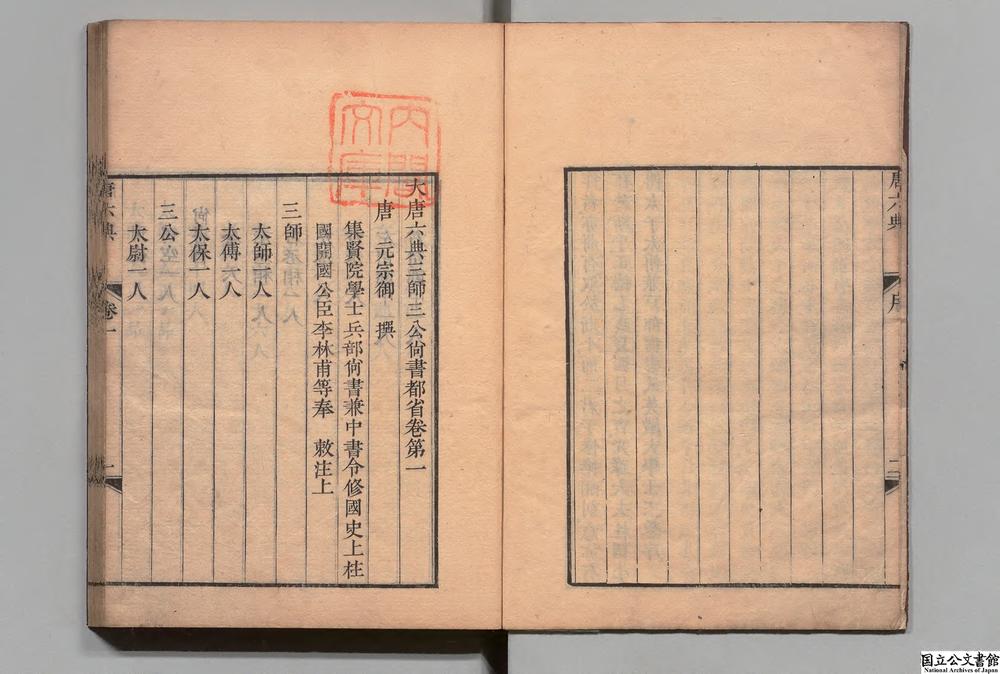 唐六典
序
二
內閣文庫
大唐六典三師三公尙書都省卷第一
唐 元宗御 撰
集賢院學士兵部尙書兼中書令修國史上柱
國開國公臣李林甫等奉 敕注上
三師
太師一人
太傅一人
太保一人
三公
太尉一人
唐六典
卷一
一
国立公文書館
National Archives of Japan